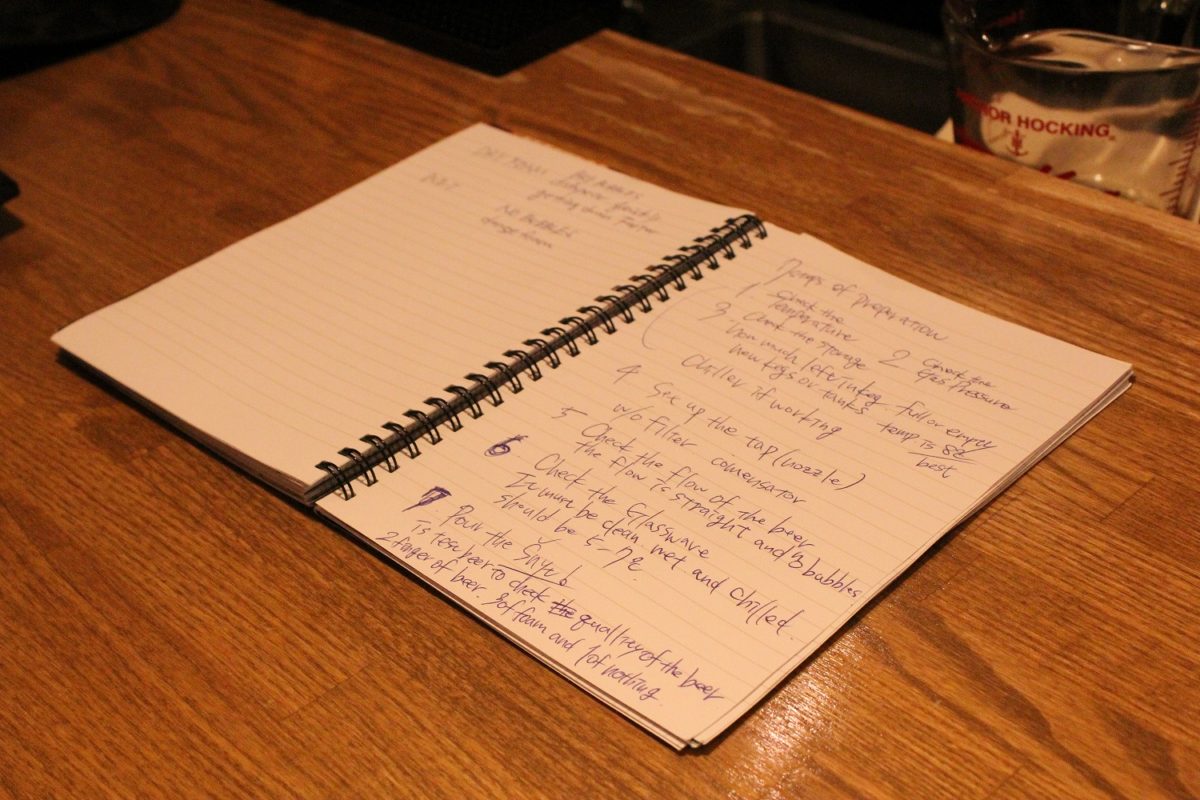 7 steps of preparation
1 Check the
Temperature
2 Check the
Gas Pressure
3 Check the storage
how much left in keg. full or empty
new kegs or tanks temp is 8℃
best
Chiller it working
4 Set up the tap (nozzle)
w/o Filter comensator
5 Check the flow of the beer
the flow is straight and no babbles
6 Check the Glassware
It must be clean wet and chilled.
should be 5-7℃
7. Pour the
Is test beer to check the quality of the beer
2 finger of beer. 3 of foam and 1 of nothing.
No Bubbles
ANCHOR HOCKING